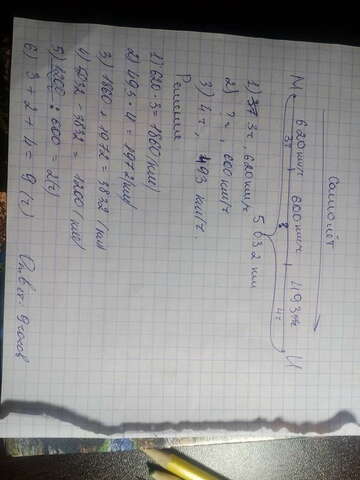 Самолёт
М 620 км/ч 600 км/ч 493 км/ч И
3ч ? 4ч
5032 км
1) 3ч, 620 км/ч
2) ? ч, 600 км/ч
3) 4 ч, 493 км/ч
Решение
1) 620 · 3 = 1860 (км)
2) 493 · 4 = 1972 (км)
3) 1860 + 1972 = 3832 (км)
4) 5032 - 3832 = 1200 (км)
5) 1200 : 600 = 2 (ч)
6) 3 + 2 + 4 = 9 (ч) Ответ: 9 часов